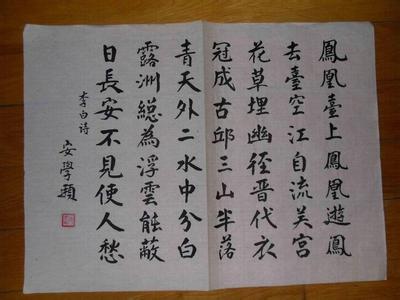 鳳凰臺上鳳凰遊鳳
去臺空江自流吴宮
花草埋幽徑晉代衣
冠成古邱三山半落
青天外二水中分白
露洲總為浮雲能蔽
日長安不見使人愁
李白诗
安學穎